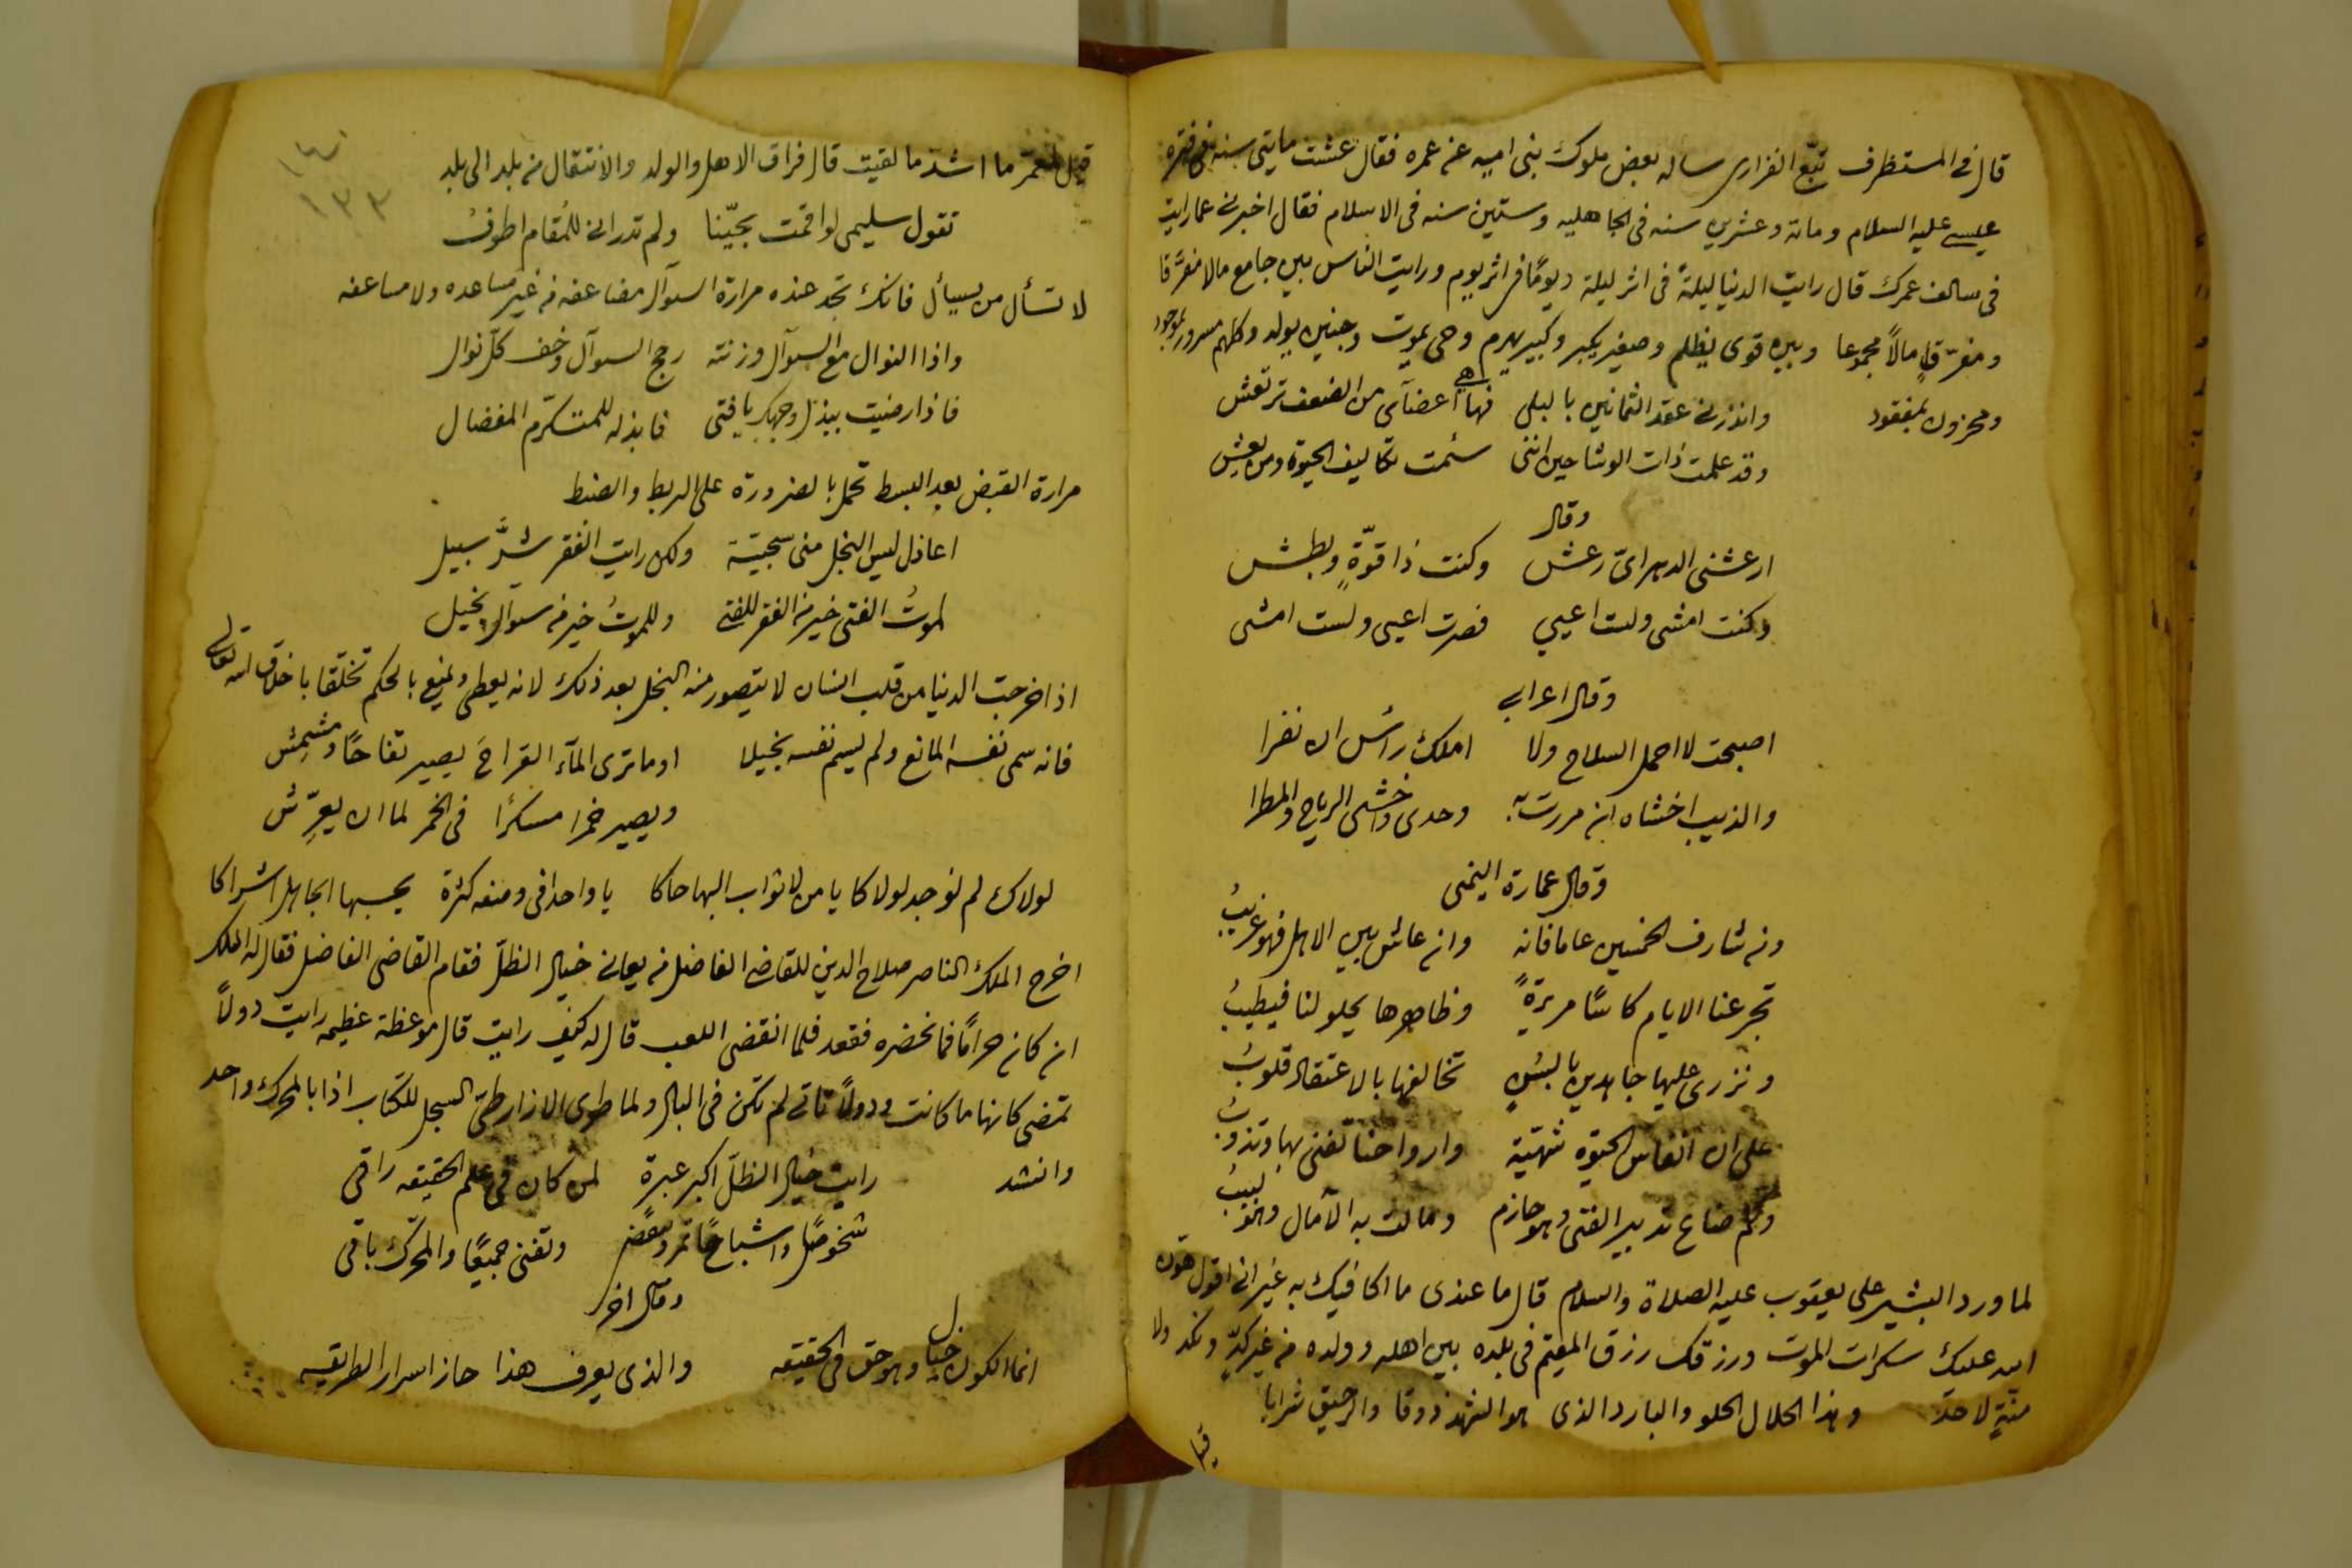 قال فى المستظرف تبّع الفزارى ساله بعض ملوك بنى اميه عن عمره فقال عشت مايتى سنه فى فترة
عيسى عليه السلام ومائة وعشرين سنه فى الجاهليه وستين سنه فى الاسلام فقال اخبرنى عما رايت
فى سالف عمرك قال رايت الدنيا ليلةً فى اثر ليلة ويومًا فى اثر يوم ورايت الناس بين جامع مالا مفرّقا
ومفرّق مالاً مجموعا وبين قوى يظلم وصغير يكبر وكبير يهرم وحى يموت وجنين يولد وكلهم مسرور بموجود
ومحزون بمفقود وانذرنى عقد الثمانين بالبلى فها هى اعضآى من الضعف ترتعش
وقد علمت ذات الوشاحين اننى سئمت تكاليف الحيوة ومن يعش
وقال
ارعشنى الدهر اىّ رعش وكنت ذا قوّةٍ وبطش
وكنت امشى ولست اعيي فصرت اعيى ولست امشى
وقال اعرابى
اصبحت لا احمل السلاح ولا املك راس ان نفرا
والذيب اخشاه ان مررت به وحدى واخشى الرياح والمطرا
وقال عمارة اليمنى
ومن شارف الخمسين عاما فانه وان عاش بين الاهل فهو غريبُ
تجرعنا الايام كاسًا مريرةً وظاهرها يحلو لنا فيطيبُ
ونزرى عليها جاهدين بالسنٍ تخالفها بالاعتقاد قلوبُ
على ان انفاس الحيوة شهيّة وارواحنا تفنى بها وتذوبُ
وكم ضاع تدبير الفتى وهو حازم ومالت به الآمال وهو لبيبُ
لما ورد البشير على يعقوب عليه الصلاة والسلام قال ما عندى ما اكافيك به غير انى اقول هون
الله عليك سكرات الموت ورزقك رزق المقيم فى بلده بين اهله وولده من غير كدٍّ ونكد ولا
منّةٍ لاحد وهذا الحلال الحلو والبارد الذى هو الشهد ذوقا والرحيق شرابا
قيل
قيل لمعمّر ما اشدّ ما لقيت قال فراق الاهل والولد والانتقال من بلد الى بلد
١٣٣
تقول سليمى لو اقمت بحيّنا ولم تدر انى للمُقام اطوفُ
لا تسأل من يسيأل فانك تجد عنده مرارة السوآل مضاعفه من غير مساعده ولا مساعفه
واذا النوال مع السوآل وزنته رجح السوآل وخف كلّ نوال
فاذا رضيت ببذل وجهك يا فتى فابذله للمتكرّم المفضال
مرارة القبض بعد البسط تحمل بالضرورة على الربط والضبط
اعاذل ليس البخل منى سجيّة ولكن رايت الفقر شرَّ سبيل
لموتُ الفتى خير من الفقر للفتى وللموتُ خير من سوآل بخيل
اذا خرجت الدنيا من قلب انسان لا يتصور منه البخل بعد ذلك لانه يعطى ويمنع بالحكم تخلّقا باخلاق الله تعالى
فانه سمى نفسه المانع ولم يسم نفسه بخيلا اوما ترى المآء القراحَ يصير تفاحًا ومشمِش
ويصير خمرا مسكرًا فى الخمر لما ان يعرِّش
لولاك لم نوجد لولاكا يا من لاثواب البها حاكا يا واحدا فى وصفه كثرة يحسبها الجاهل اشراكا
اخرج الملك الناصر صلاح الدين للقاضى الفاضل من يعانى خيال الظلّ فقام القاضى الفاضل فقال له الملك
ان كان حرامًا فما نحضره فقعد فلما انقضى اللعب قال له كيف رايت قال موعظة عظيمه رايت دولاً
تمضى كانها ما كانت ودولاً تاتى لم تكن فى البال ولما طوى الازار طىّ السجل للكتاب اذا بالمحرك واحد
وانشد رايت خيال الظلّ اكبر عبرة لمن كان فى علم الحقيقه راقى
شخوصًا واشباحًا تمر وتنقضى وتفنى جميعًا والمحرّك باقى
وقال اخر
انما الكون خيال وهو حق فى الحقيقه والذى يعرف هذا حاز اسرار الطريقه